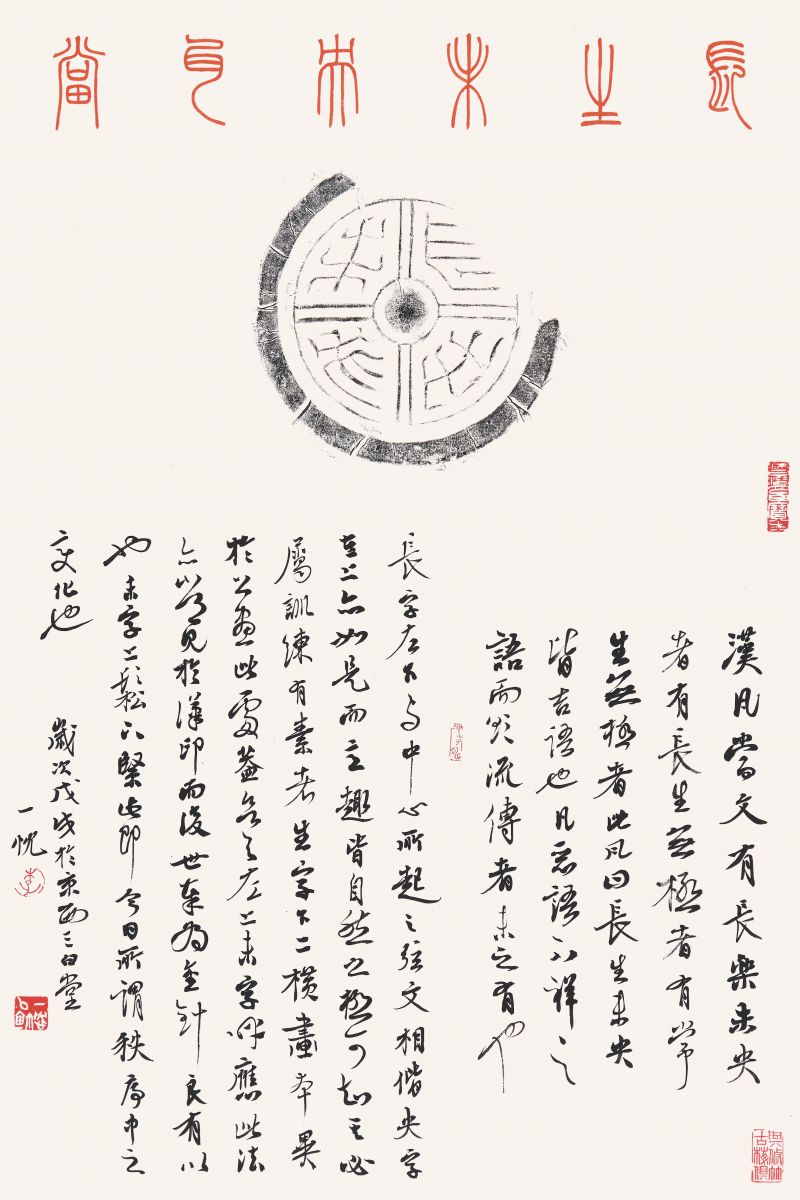 長生未央瓦當
長生未央
漢瓦當文有長樂未央
者有長生無極者有常
生無極者此瓦曰長生未央
皆吉語也凡惡語不祥之
語而欲流傳者未之有也
長字左下与中心所起之弦文相偕央字
左上亦如是而主趣皆自然之極可知其必
屬訓練有素者生字下二橫畫本異
於上畫此處蓋欲与左上未字呼應此法
亦以習見於漢印而後世奉為金針良有以
也未字上鬆下緊此即今日所謂秩序中之
變化也
歲次戊戌於京西三白堂
一忱